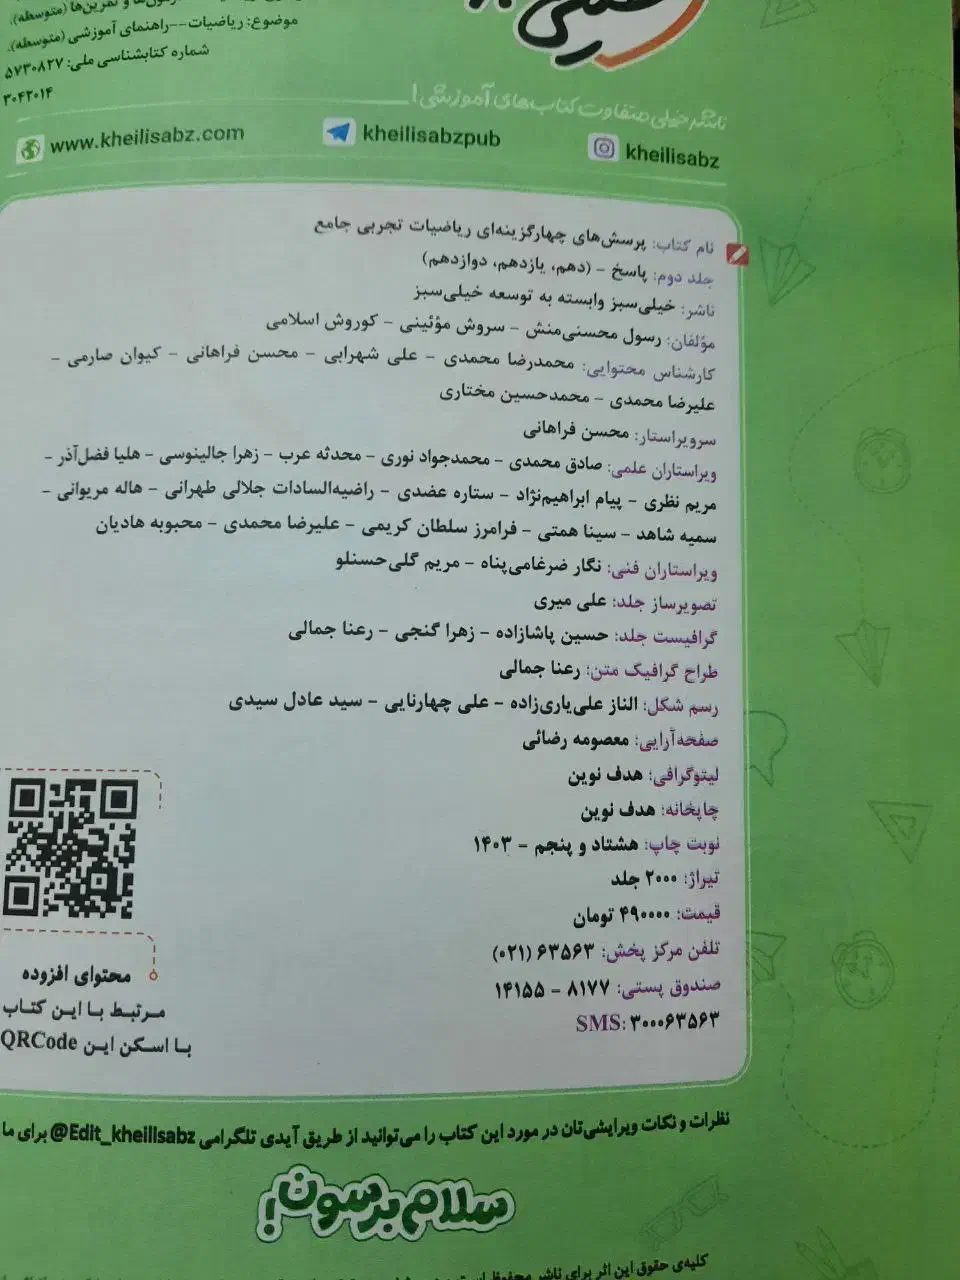 موضوع: ریاضیات--راهنمای آموزشی (متوسطه).
شماره کتابشناسی ملی: ۵۷۳۰۸۲۷
۳۰۴۲۰۱۴
ناشر خیلی متفاوت کتاب‌های آموزشی!
www.kheilisabz.com kheilisabzpub kheilisabz
نام کتاب: پرسش‌های چهارگزینه‌ای ریاضیات تجربی جامع
جلد دوم: پاسخ - (دهم، یازدهم، دوازدهم)
ناشر: خیلی‌سبز وابسته به توسعه خیلی‌سبز
مؤلفان: رسول محسنی‌منش - سروش مؤئینی - کوروش اسلامی
کارشناس محتوایی: محمدرضا محمدی - علی شهرابی - محسن فراهانی - کیوان صارمی -
علیرضا محمدی - محمدحسین مختاری
سرویراستار: محسن فراهانی
ویراستاران علمی: صادق محمدی - محمدجواد نوری - محدثه عرب - زهرا جالینوسی - هلیا فضل‌آذر -
مریم نظری - پیام ابراهیم‌نژاد - ستاره عضدی - راضیه‌السادات جلالی طهرانی - هاله مریوانی -
سمیه شاهد - سینا همتی - فرامرز سلطان کریمی - علیرضا محمدی - محبوبه هادیان
ویراستاران فنی: نگار ضرغامی‌پناه - مریم گلی‌حسنلو
تصویرساز جلد: علی میری
گرافیست جلد: حسین پاشازاده - زهرا گنجی - رعنا جمالی
طراح گرافیک متن: رعنا جمالی
رسم شکل: الناز علی‌یاری‌زاده - علی چهارنایی - سید عادل سیدی
صفحه‌آرایی: معصومه رضائی
لیتوگرافی: هدف نوین
چاپخانه: هدف نوین
نوبت چاپ: هشتاد و پنجم - ۱۴۰۳
تیراژ: ۲۰۰۰ جلد
قیمت: ۴۹۰۰۰۰ تومان
تلفن مرکز پخش: ۶۳۵۶۳ (۰۲۱)
صندوق پستی: ۸۱۷۷ - ۱۴۱۵۵
SMS: ۳۰۰۰۶۳۵۶۳
محتوای افزوده
مرتبط با این کتاب
با اسکن این QRCode
نظرات و نکات ویرایشی‌تان در مورد این کتاب را می‌توانید از طریق آیدی تلگرامی @Edit_kheilisabz برای ما
سلام برسون!
کلیه‌ی حقوق این اثر برای ناشر محفوظ است